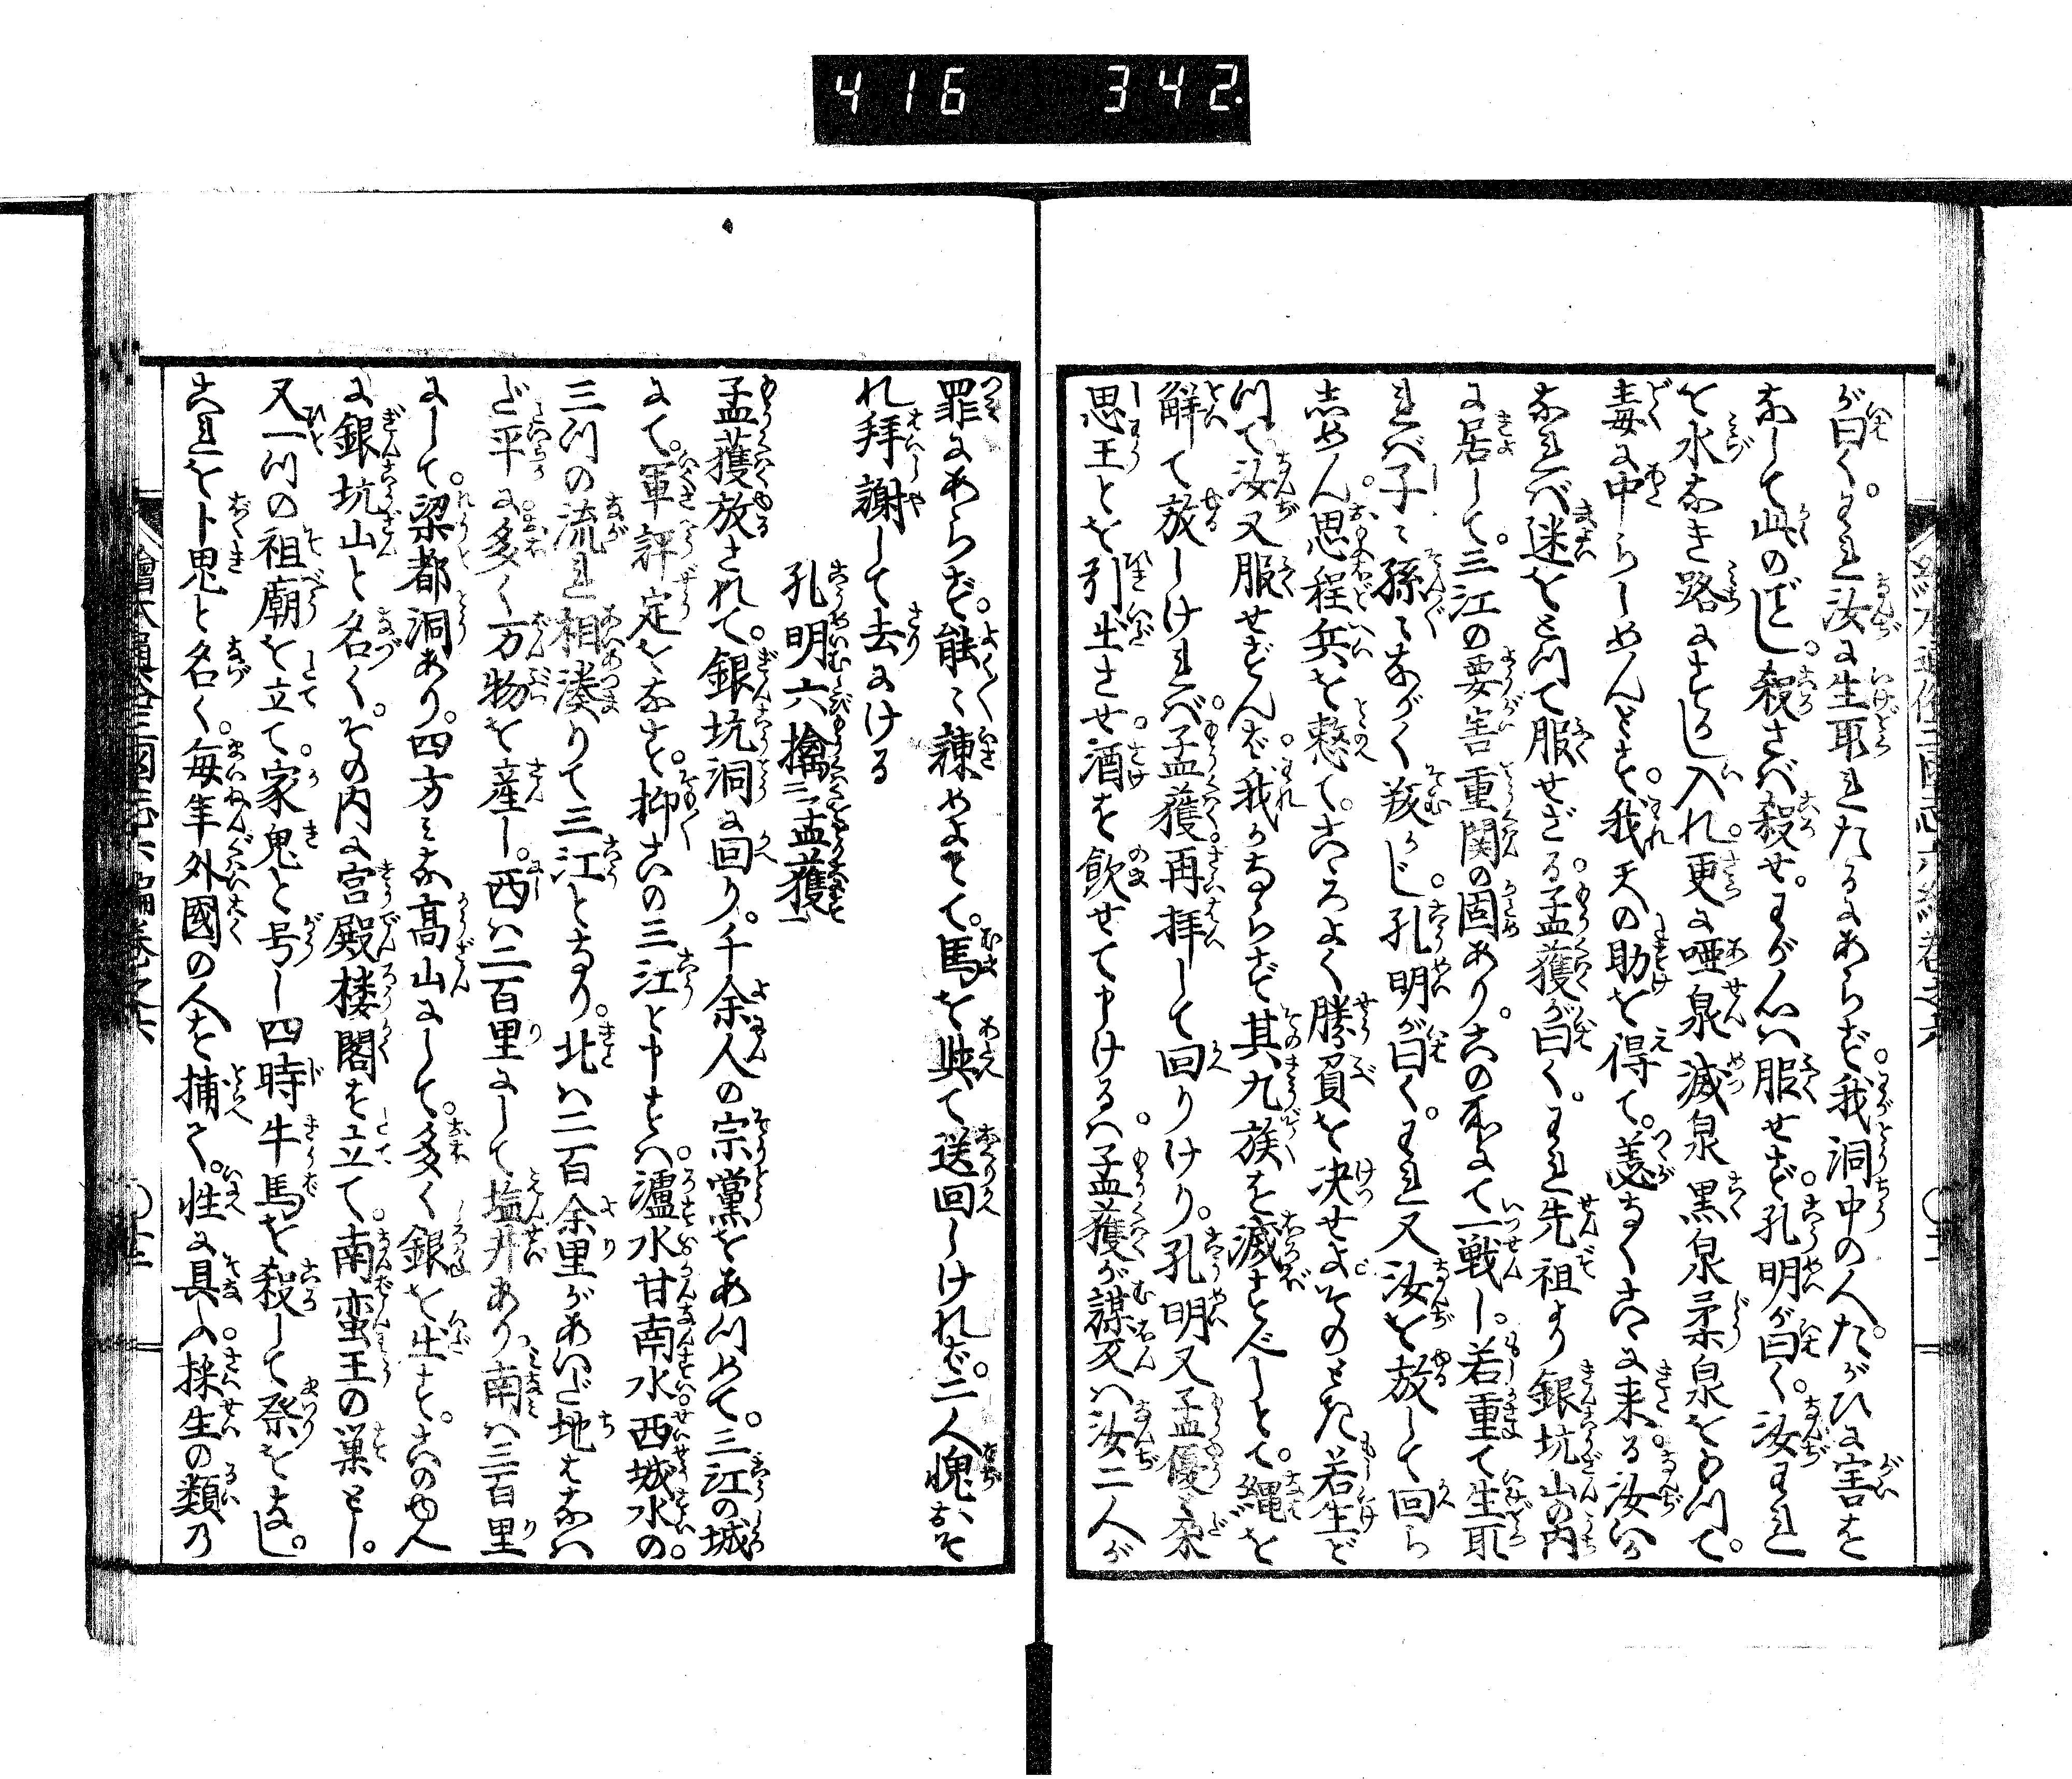 416 342.
が曰く。われ汝に生取れたるにあらず。我洞中の人。たがひに害を
なして此のごとし。殺さば殺せ。わが心ハ服せず。孔明が曰く。汝われ
を水なき路にすかし入れ。更に唖泉滅泉黒泉柔泉をもつて。
毒に中らしめんとす。我天の助を得て。恙なくこゝに来る。汝いか
なれバ迷をとつて服せざる。孟獲が曰く。われ先祖より銀坑山の内
に居して。三江の要害重関の固あり。この所にて一戦し。若重て生取
れバ子々孫々ながく叛かじ。孔明が曰く。われ又汝を放して回ら
しめん。思程兵を整て。こゝろよく勝負を决せよ。そのとき若生ど
つて汝又服せずんバ。我かならず其九族を滅すべしとて。縄を
解て放しけれバ。孟獲再拝して回りけり。孔明又孟優朶
思王とを引出させ。酒を飲せて申けるハ。孟獲が謀叛ハ汝二人が
罪にあらず。能々諌めよとて。馬を與て送回しければ。二人愧おそ
れ拜謝して去にける
孔明六擒二孟獲一
孟獲放されて。銀坑洞に回り。千余人の宗黨をあつめて。三江の城
にて。軍評定をなす。抑この三江と申すハ。瀘水甘南水西城水の。
三つの流れ相湊りて三江となり。北ハ二百余里があいだ地たいら
ど平に多く万物を産し。西ハ二百里にして塩井あり南ハ三百里
にして。梁都洞あり。四方ミな高山にして。多く銀を出す。この中人
に銀坑山と名く。その内に宮殿楼閣を立て。南蛮王の巣とし。
又一つの祖廟を立て。家鬼と号し四時牛馬を殺して祭をなし。
これをト鬼と名く。毎年外國の人を捕へて。性に具ふ。採生の類乃